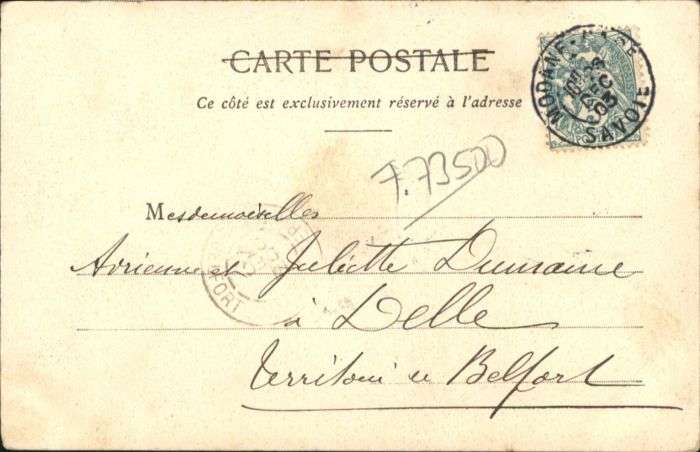 CARTE POSTALE
MODANE-GARE
DEC
03
SAVOIE
Ce côté est exclusivement réservé à l'adresse
7.73500
Mesdemoiselles
Adrienne et Juliette Dumaine
à Delle
Territoire de Belfort
FORT